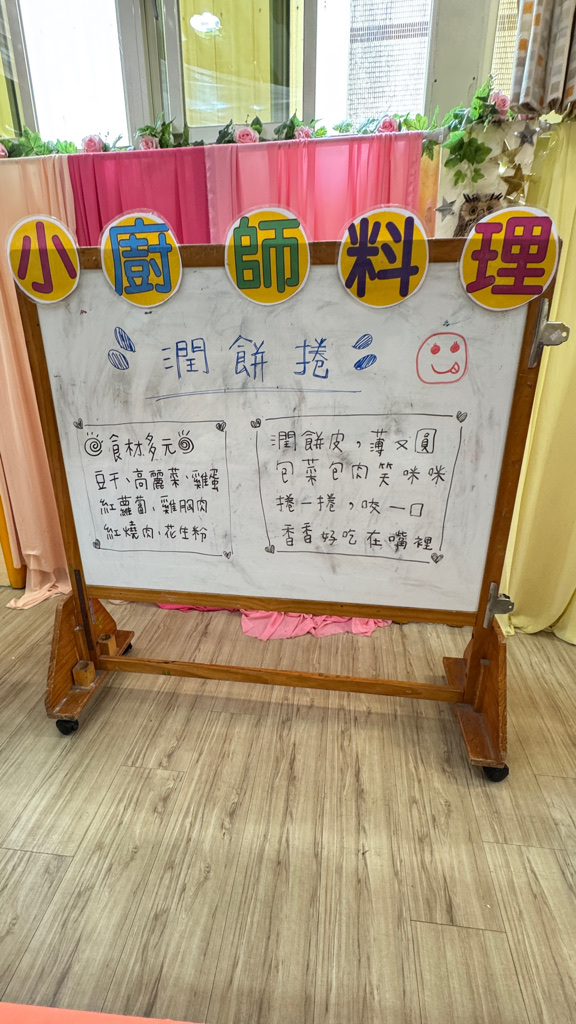 小廚師料理
潤餅捲
食材多元
豆干、高麗菜、雞蛋
紅蘿蔔、雞胸肉
紅燒肉、花生粉
潤餅皮,薄又圓
包菜包肉笑咪咪
捲一捲,咬一口
香香好吃在嘴裡